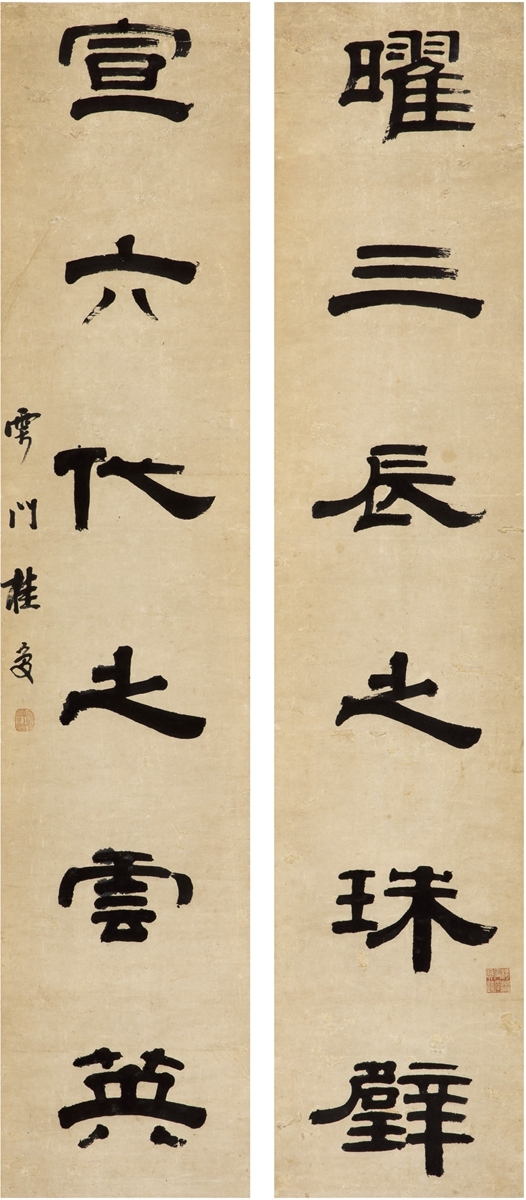 曜三辰之珠璧
宣六代之雲英
雲門桂馥